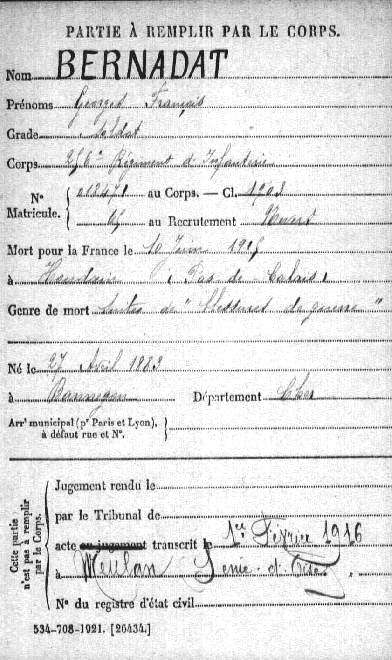 PARTIE À REMPLIR PAR LE CORPS.
Nom BERNADAT
Prénoms Georges François
Grade Soldat
Corps Régiment d'Infanterie
N° Matricule. { 018471 au Corps. — Cl. 1903
au Recrutement
Mort pour la France le 10 Juin 1915
à Houdain (Pas de Calais)
Genre de mort Suites de "Blessures de guerre"
Né le 27 Avril 1883
à Bannegon Département Cher
Arr' municipal (p' Paris et Lyon), à défaut rue et N°. }
Cette partie n'est pas à remplir par le Corps. {
Jugement rendu le
par le Tribunal de
acte ou jugement transcrit le 1er Février 1916
à Meulan Seine-et-Oise
N° du registre d'état civil
534-708-1921. [26434.]